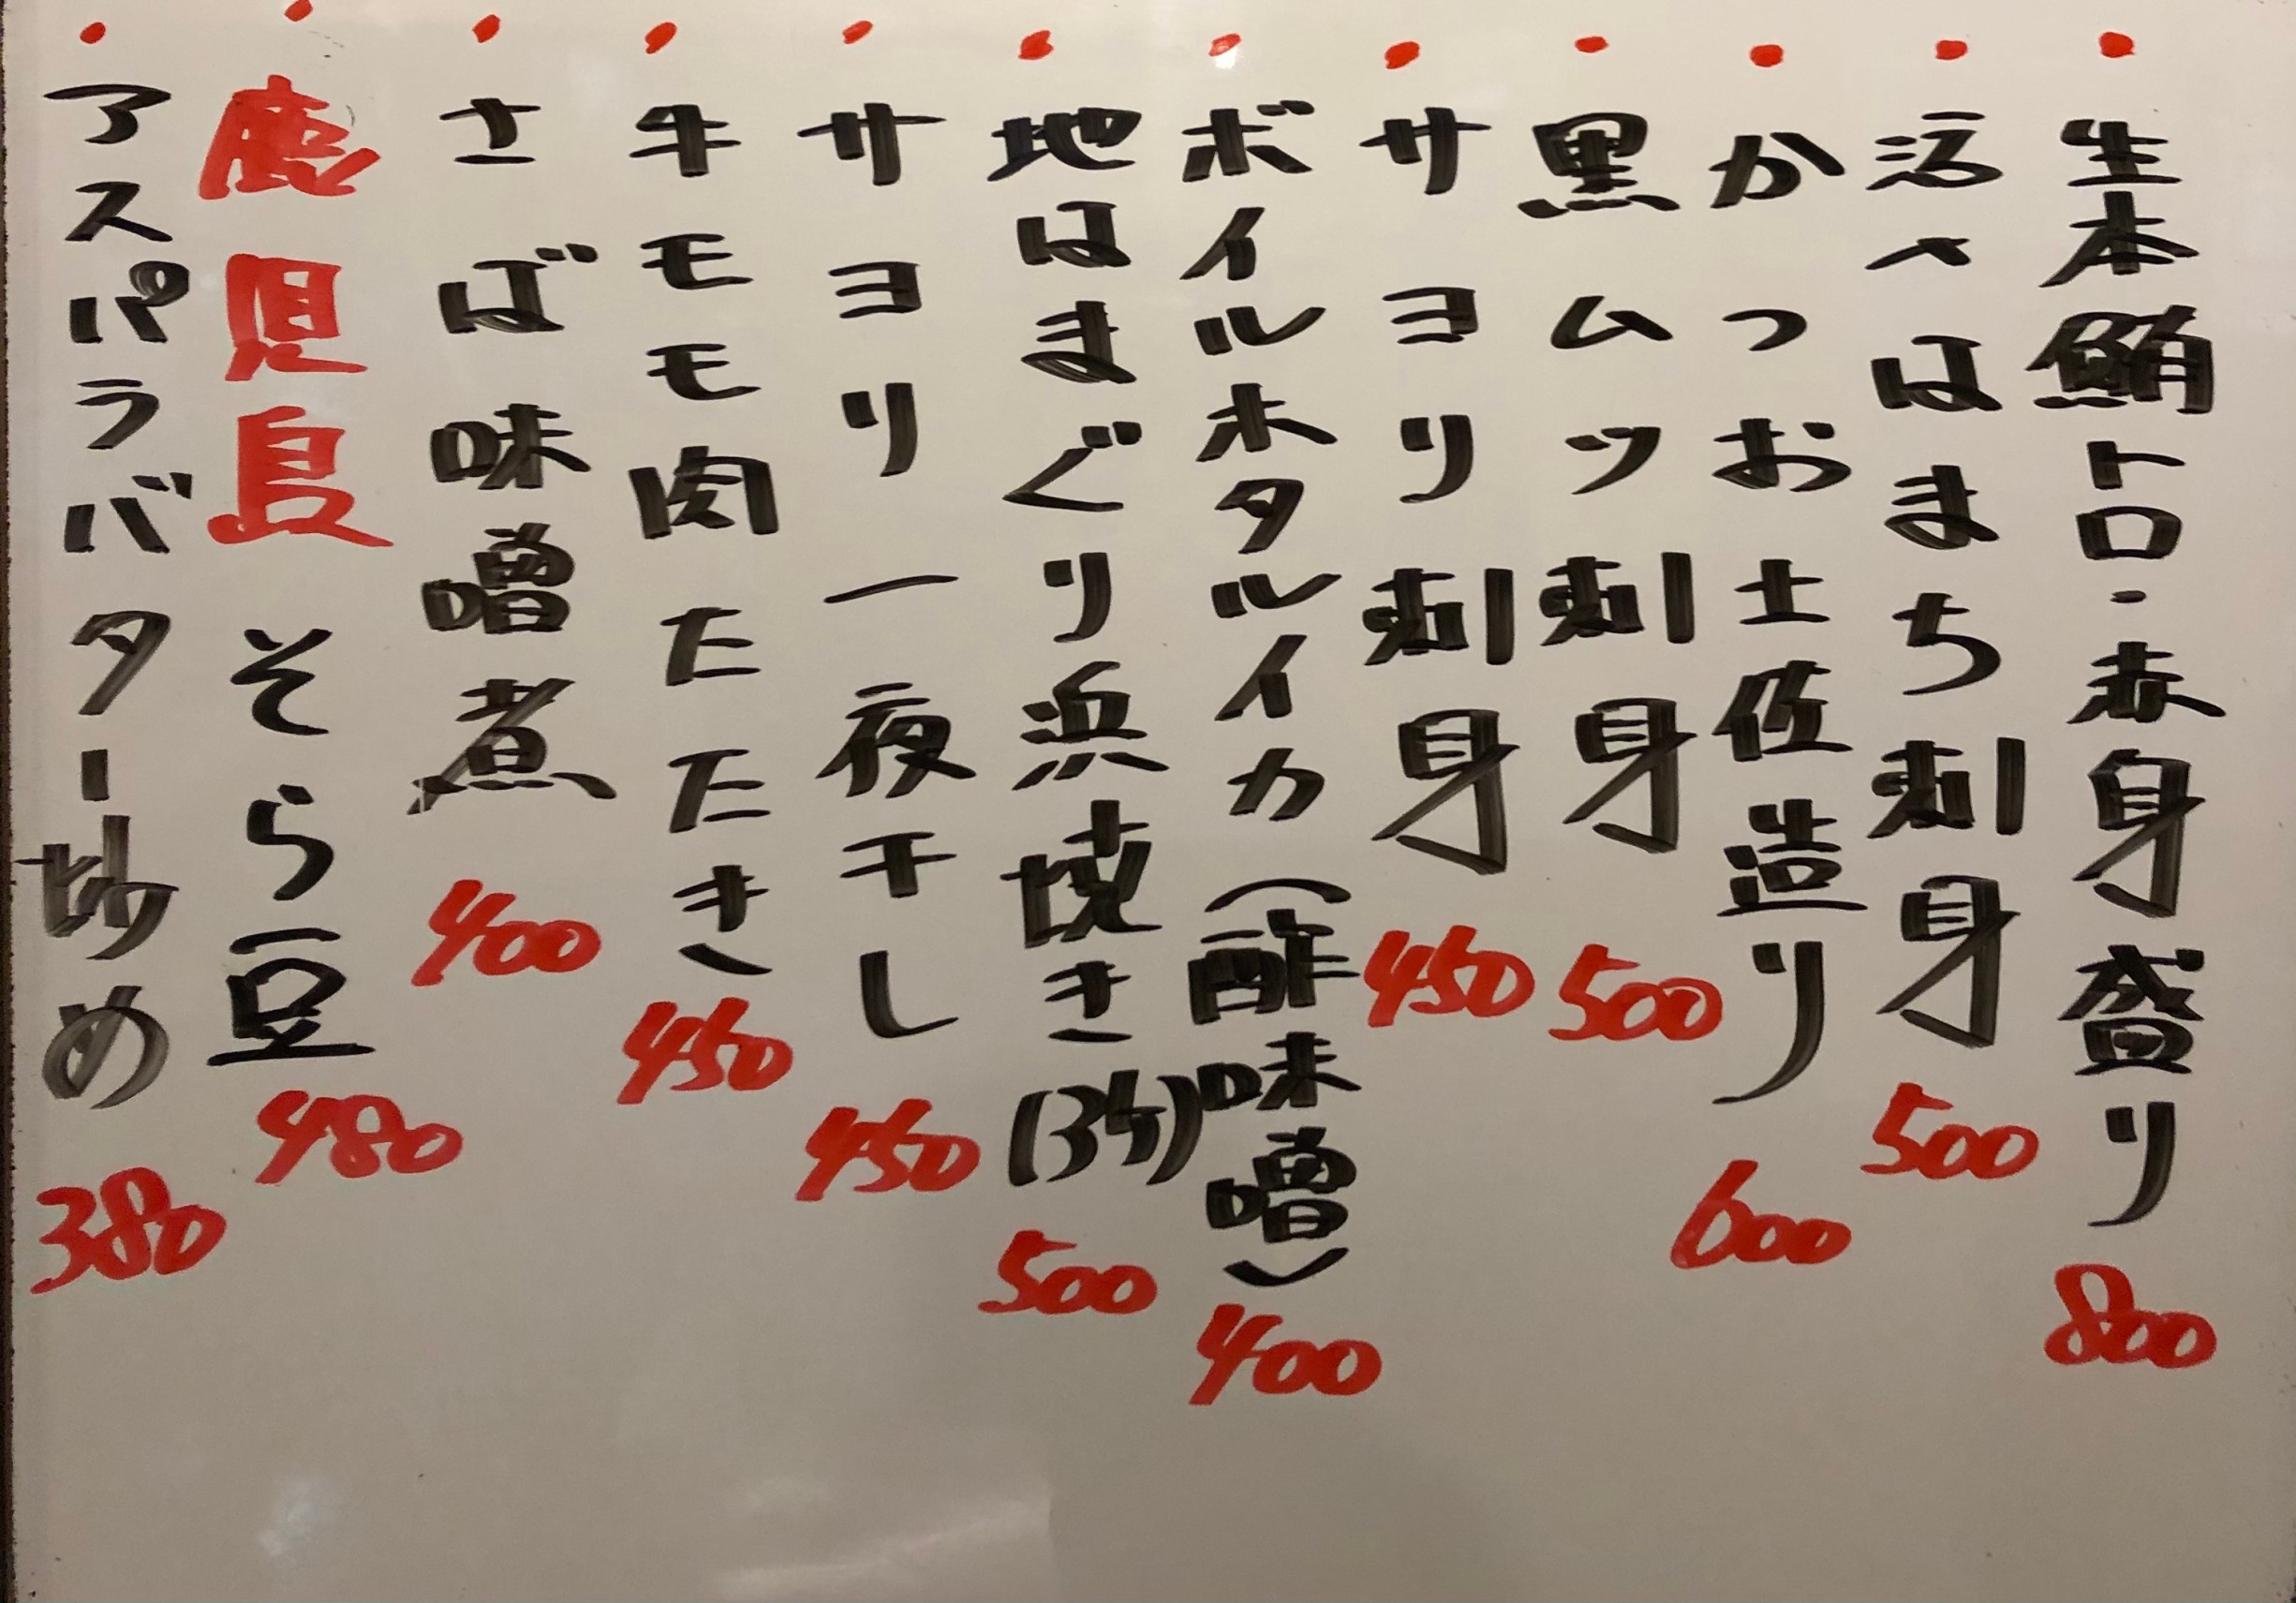 ・生本鮪トロ・赤身盛り 800
・活〆はまち刺身 500
・かつお土佐造り 600
・黒ムツ刺身 500
・サヨリ刺身 450
・ボイルホタルイカ(酢味噌) 400
・地はまぐり浜焼き(3ヶ) 500
・サヨリ一夜干し 450
・牛モモ肉たたき 450
・さば味噌煮 400
・鹿児島そら豆 480
・アスパラバター炒め 380